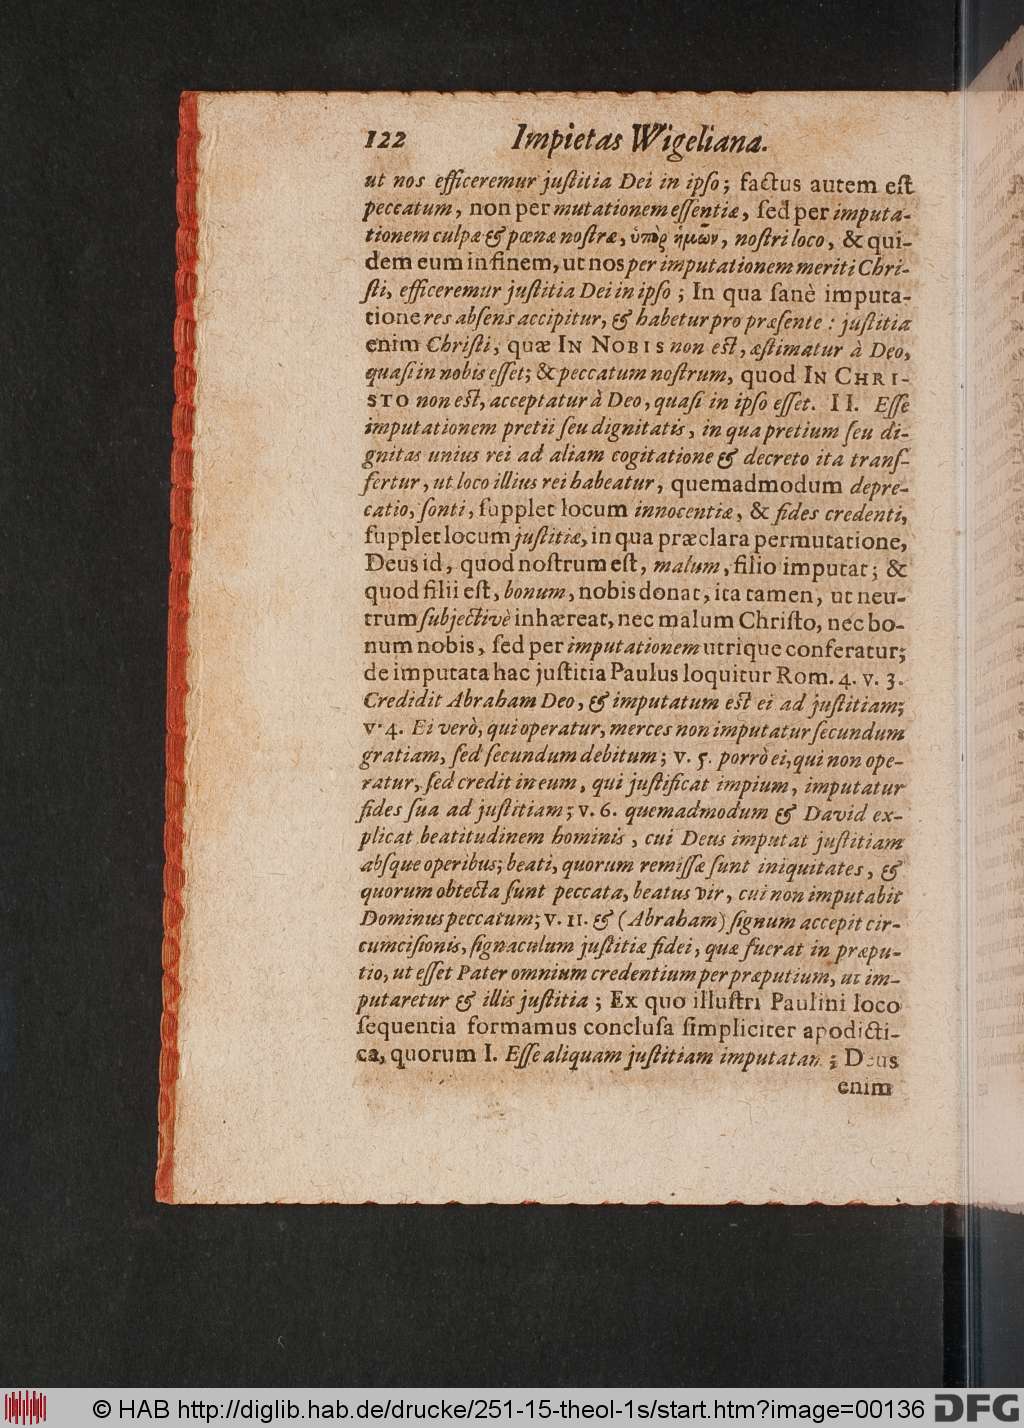 122 Impietas Wigeliana.
ut nos efficeremur juſtitia Dei in ipſo; factus autem eſt
peccatum, non per mutationem eſſentiæ, ſed per imputa-
tionem culpæ & pœnæ noſtræ, ὑπὲρ ἡμῶν, noſtri loco, & qui-
dem eum in finem, ut nos per imputationem meriti Chri-
ſti, efficeremur juſtitia Dei in ipſo; In qua ſanè imputa-
tione res abſens accipitur, & habetur pro præſente: juſtitia
enim Chriſti, quæ IN NOBIS non eſt, æſtimatur à Deo,
quaſi in nobis eſſet; & peccatum noſtrum, quod IN CHRI-
STO non eſt, acceptatur à Deo, quaſi in ipſo eſſet. II. Eſſe
imputationem pretii ſeu dignitatis, in qua pretium ſeu di-
gnitas unius rei ad aliam cogitatione & decreto ita tranſ-
fertur, ut loco illius rei habeatur, quemadmodum depre-
catio, ſonti, ſupplet locum innocentiæ, & fides credenti,
ſupplet locum juſtitiæ, in qua præclara permutatione,
Deus id, quod noſtrum eſt, malum, filio imputat; &
quod filii eſt, bonum, nobis donat, ita tamen, ut neu-
trum ſubjectivè inhæreat, nec malum Chriſto, nec bo-
num nobis, ſed per imputationem utrique conferatur;
de imputata hac juſtitia Paulus loquitur Rom. 4. v. 3.
Credidit Abraham Deo, & imputatum eſt ei ad juſtitiam;
v. 4. Ei verò, qui operatur, merces non imputatur ſecundum
gratiam, ſed ſecundum debitum; v. 5. porrò ei, qui non ope-
ratur, ſed credit in eum, qui juſtificat impium, imputatur
fides ſua ad juſtitiam; v. 6. quemadmodum & David ex-
plicat beatitudinem hominis, cui Deus imputat juſtitiam
abſque operibus; beati, quorum remiſſæ ſunt iniquitates, &
quorum obtecta ſunt peccata, beatus vir, cui non imputabit
Dominus peccatum; v. 11. & (Abraham) ſignum accepit cir-
cumciſionis, ſignaculum juſtitiæ fidei, quæ fuerat in præpu-
tio, ut eſſet Pater omnium credentium per præputium, ut im-
putaretur & illis juſtitia; Ex quo illuſtri Paulini loco
ſequentia formamus concluſa ſimpliciter apodicti-
ca, quorum I. Eſſe aliquam juſtitiam imputatam; Deus
enim
© HAB http://diglib.hab.de/drucke/251-15-theol-1s/start.htm?image=00136
DFG